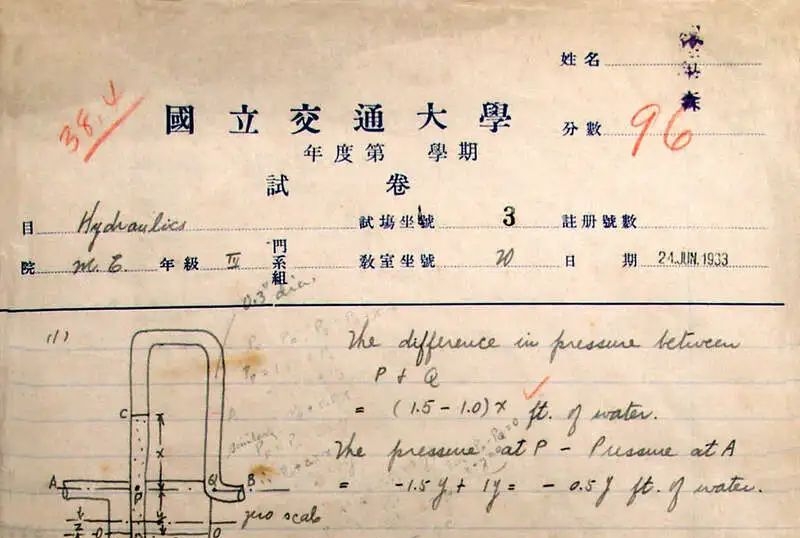 姓名 森
38.4
國立交通大學
分數 96
年度第 學期
試 卷
目 Hydraulics 試場坐號 3 註册號數
院 M.E. 年級 IV 門系組 教室坐號 20 日 期 24.JUN.1933
0.3" dia.
(1) The difference in pressure between
P & Q
= (1.5 - 1.0) x ft. of water.
C
x
similarly
The pressure at P - Pressure at A
A P Q B
= -1.5 y + 1y = - 0.5 y ft. of water.
y
zero scale